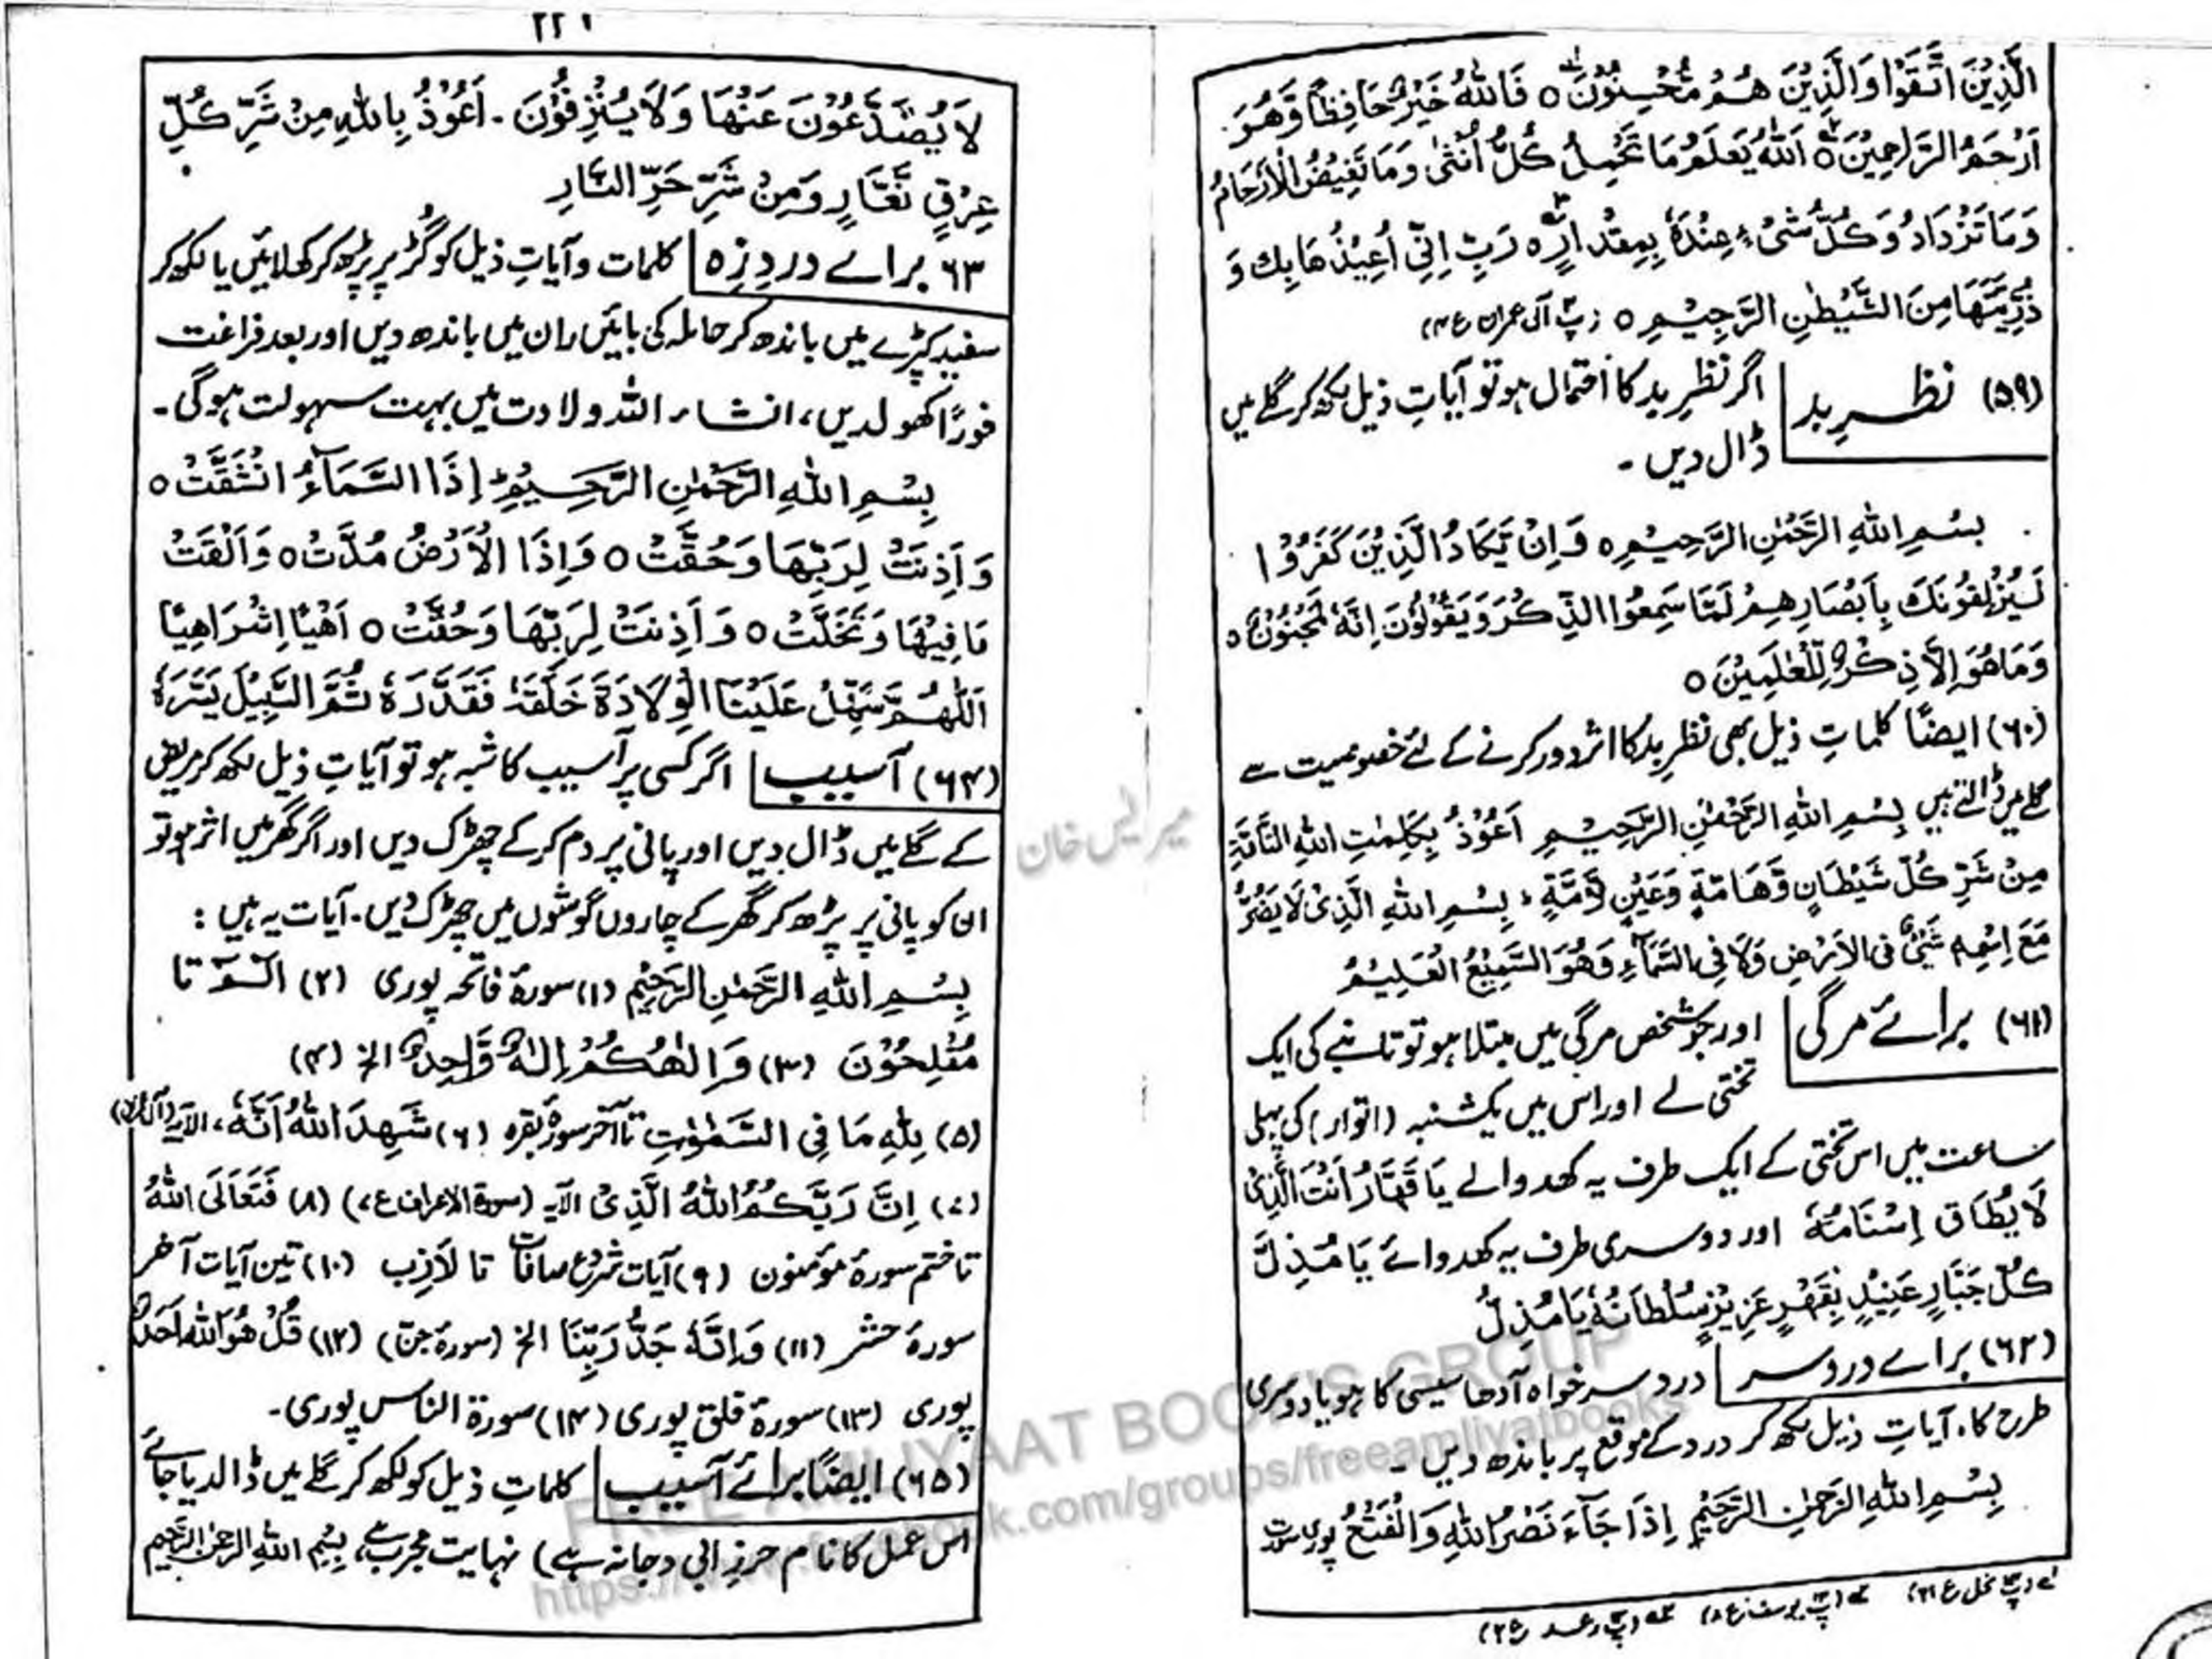 الَّذِيْنَ اتَّقَوْا وَالَّذِيْنَ هُمْ مُّحْسِنُوْنَ ٥ فَاللّٰهُ خَيْرٌ حَافِظًا وَّهُوَ
اَرْحَمُ الرّٰحِمِيْنَ ٥ اَللّٰهُ يَعْلَمُ مَا تَحْمِلُ كُلُّ اُنْثٰى وَمَا تَغِيْضُ الْاَرْحَامُ
وَمَا تَزْدَادُ وَكُلُّ شَىْءٍ عِنْدَهٗ بِمِقْدَارٍ ٥ رَبِّ اِنِّىْ اُعِيْذُهَا بِكَ وَ
ذُرِّيَّتَهَا مِنَ الشَّيْطٰنِ الرَّجِيْمِ ٥ (پ۳ آل عمران ع۴)
(۵۹) نظرِ بد اگر نظرِ بد کا احتمال ہو تو آیاتِ ذیل لکھ کر گلے میں
ڈال دیں ۔
بِسْمِ اللهِ الرَّحْمٰنِ الرَّحِيْمِ ٥ وَاِنْ يَّكَادُ الَّذِيْنَ كَفَرُوْا
لَيُزْلِقُوْنَكَ بِاَبْصَارِهِمْ لَمَّا سَمِعُوا الذِّكْرَ وَيَقُوْلُوْنَ اِنَّهٗ لَمَجْنُوْنٌ ٥
وَمَا هُوَ اِلَّا ذِكْرٌ لِّلْعٰلَمِيْنَ ٥
(۶۰) ایضًا کلماتِ ذیل بھی نظرِ بد کا اثر دور کرنے کے لئے خصوصیت سے
گلے میں ڈالتے ہیں بِسْمِ اللهِ الرَّحْمٰنِ الرَّحِيْمِ اَعُوْذُ بِكَلِمٰتِ اللهِ التَّآمَّةِ
مِنْ شَرِّ كُلِّ شَيْطَانٍ وَّهَامَّةٍ وَعَيْنٍ لَّامَّةٍ ، بِسْمِ اللهِ الَّذِىْ لَا يَضُرُّ
مَعَ اِسْمِهٖ شَىْءٌ فِى الْاَرْضِ وَلَا فِى السَّمَآءِ وَهُوَ السَّمِيْعُ الْعَلِيْمُ
(۶۱) برائے مرگی اور جو شخص مرگی میں مبتلا ہو تو تانبے کی ایک
تختی لے اور اس میں یکشنبہ (اتوار) کی پہلی
ساعت میں اس تختی کے ایک طرف یہ کھدوالے يَا قَهَّارُ اَنْتَ الَّذِىْ
لَا يُطَاقُ اِنْتِقَامُهٗ اور دوسری طرف یہ کھدوائے يَا مُذِلَّ
كُلِّ جَبَّارٍ عَنِيْدٍ بِقَهْرِ عَزِيْزِ سُلْطَانُهٗ يَا مُذِلُّ
(۶۲) برائے دردِ سر دردِ سر خواہ آدھا سیسی کا ہو یا دوسری
طرح کا ، آیاتِ ذیل لکھ کر درد کے موقع پر باندھ دیں ۔
بِسْمِ اللهِ الرَّحْمٰنِ الرَّحِيْمِ اِذَا جَآءَ نَصْرُ اللهِ وَالْفَتْحُ پوری سورت
لے (پ۱۴ نحل ع۱۶) لے (پ۱۳ یوسف ع۸) لے (پ۱۳ رعد ع۲)
۲۲۱
لَا يُصَدَّعُوْنَ عَنْهَا وَلَا يُنْزِفُوْنَ ۔ اَعُوْذُ بِاللهِ مِنْ شَرِّ كُلِّ
عِرْقٍ نَّعَّارٍ وَّمِنْ شَرِّ حَرِّ النَّارِ
۶۳ برائے دردِ زہ کلمات و آیاتِ ذیل کو گڑ پر پڑھ کر کھلائیں یا لکھ کر
سفید کپڑے میں باندھ کر حاملہ کی بائیں ران میں باندھ دیں اور بعد فراغت
فورًا کھولدیں ، انشاء اللہ ولادت میں بہت سہولت ہوگی ۔
بِسْمِ اللهِ الرَّحْمٰنِ الرَّحِيْمِ ، اِذَا السَّمَآءُ انْشَقَّتْ ٥
وَاَذِنَتْ لِرَبِّهَا وَحُقَّتْ ٥ وَاِذَا الْاَرْضُ مُدَّتْ ٥ وَاَلْقَتْ
مَا فِيْهَا وَتَخَلَّتْ ٥ وَاَذِنَتْ لِرَبِّهَا وَحُقَّتْ ٥ اَهْيًا اِشْرَاهِيًا
اَللّٰهُمَّ سَهِّلْ عَلَيْنَا الْوِلَادَةَ خَلَقَهٗ فَقَدَّرَهٗ ثُمَّ السَّبِيْلَ يَسَّرَهٗ
(۶۴) آسیب اگر کسی پر آسیب کا شبہ ہو تو آیاتِ ذیل لکھ کر مریض
کے گلے میں ڈال دیں اور پانی پر دم کرکے چھڑک دیں اور اگر گھر میں اثر ہو تو
ان کو پانی پر پڑھ کر گھر کے چاروں گوشوں میں چھڑک دیں . آیات یہ ہیں :
بِسْمِ اللهِ الرَّحْمٰنِ الرَّحِيْمِ (۱) سورۂ فاتحہ پوری (۲) الٓمٓ تا
مُفْلِحُوْنَ (۳) وَاِلٰهُكُمْ اِلٰهٌ وَّاحِدٌ الخ (۴)
(۵) لِلّٰهِ مَا فِى السَّمٰوٰتِ تا آخر سورۂ بقرہ (۶) شَهِدَ اللهُ اَنَّهٗ ، الآیہ (آل عمران)
(۷) اِنَّ رَبَّكُمُ اللهُ الَّذِىْ الآیہ (سورۃ الاعراف ع۷) (۸) فَتَعَالَى اللهُ
تا ختم سورۂ مؤمنون (۹) آیات شروع صافات تا لَازِب (۱۰) تین آیات آخر
سورۂ حشر (۱۱) وَاِنَّهٗ جَدُّ رَبِّنَا الخ (سورۂ جن) (۱۲) قُلْ هُوَ اللهُ اَحَدٌ
پوری (۱۳) سورۂ فلق پوری (۱۴) سورۃ الناس پوری ۔
(۶۵) ایضًا برائے آسیب کلماتِ ذیل کو لکھ کر گلے میں ڈالدیا جائے
اس عمل کا نام حرزِ ابی دجانہ ہے) نہایت مجرب ہے، بِسْمِ اللهِ الرحمٰن الرَّحِيْمِ
FREE AMLIYAAT BOOKS GROUP
https://www.facebook.com/groups/freeamliyatbooks